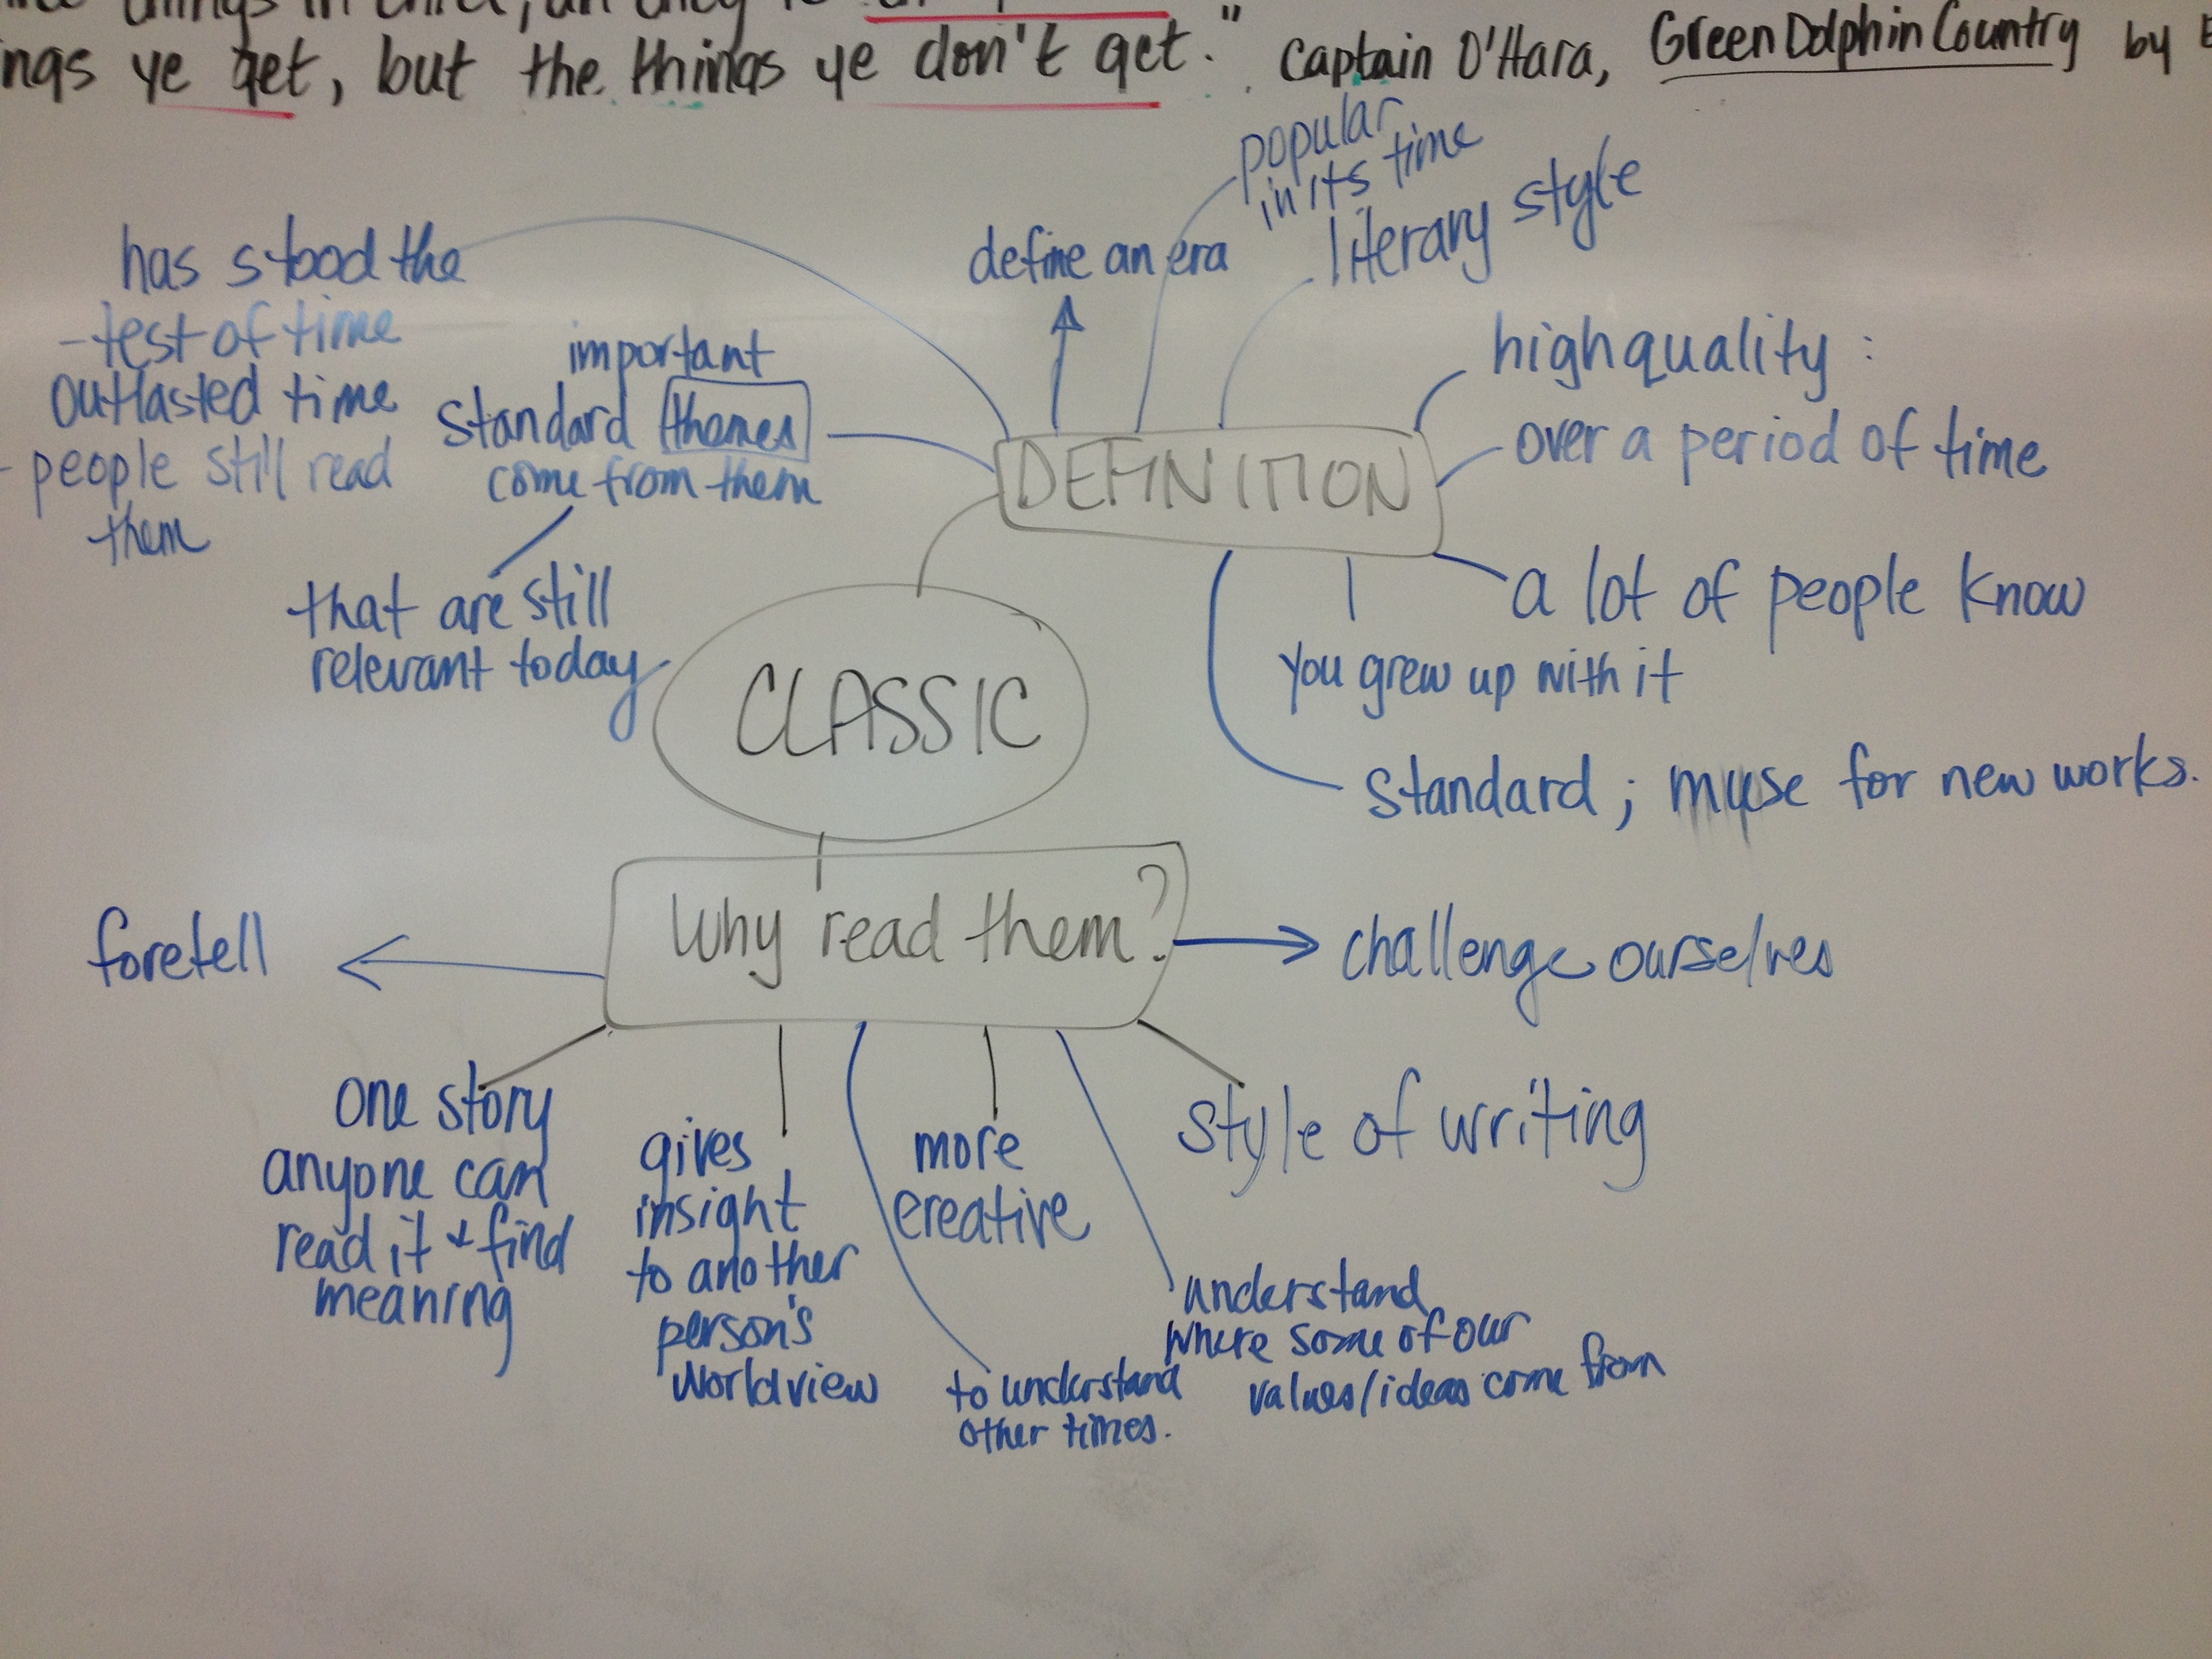 things in
ngs ye get, but the things ye don't get." Captain O'Hara, Green Dolphin Country by E
popular
in its time
literary style
define an era
has stood the
- test of time
outlasted time
- people still read
them
important
standard themes
come from them
that are still
relevant today
DEFINITION
high quality :
over a period of time
a lot of people know
you grew up with it
standard ; muse for new works.
CLASSIC
Why read them?
foretell
challenge ourselves
one story
anyone can
read it + find
meaning
gives
insight
to another
person's
worldview
to understand
other times.
more
creative
understand
where some of our
values/ideas come from
style of writing